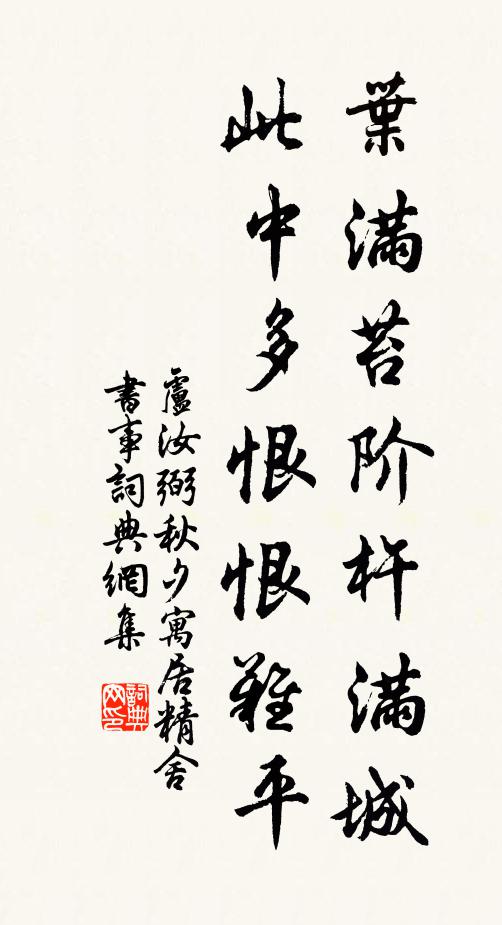 葉滿苔阶杵滿城
此中多恨恨難平
盧汝弼秋夕寓居精舍
書事詞典網集
詞典网印